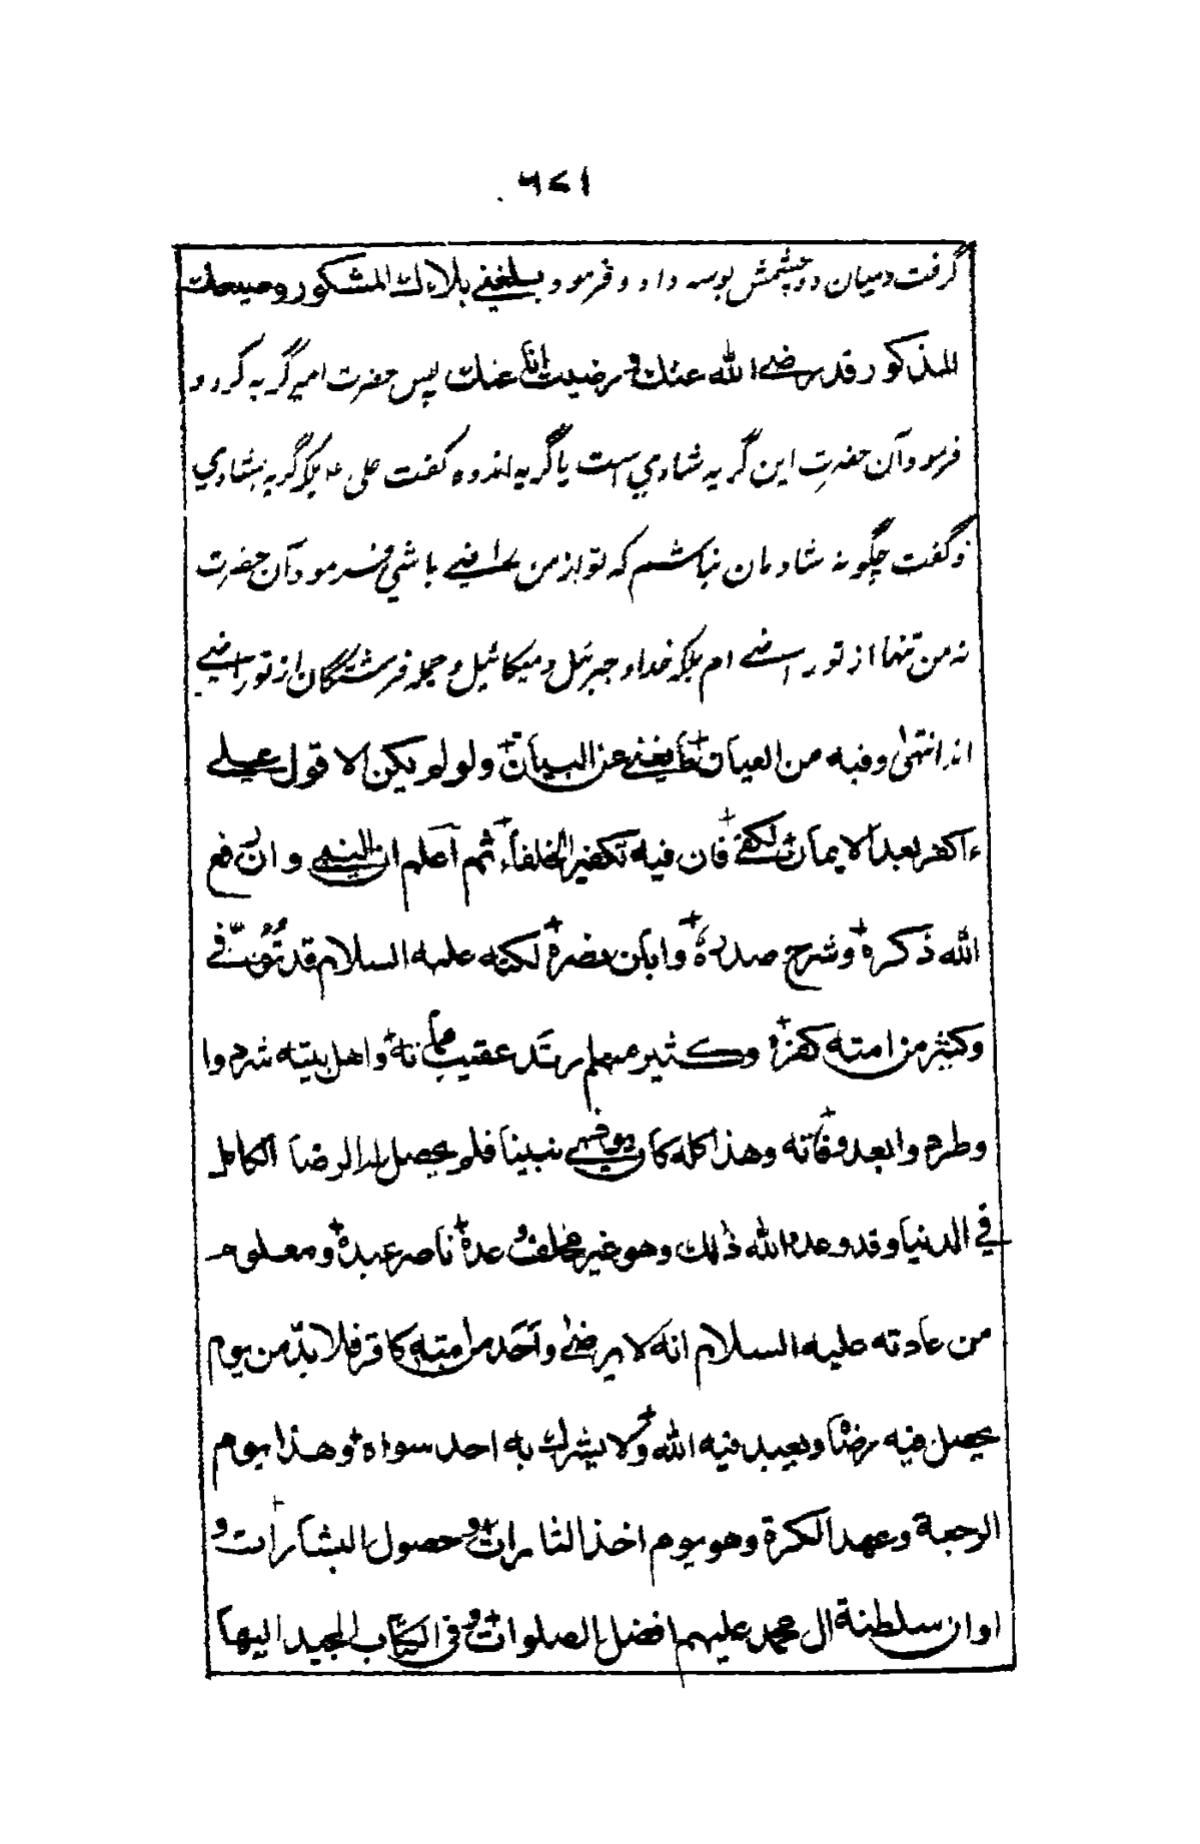 ٦٧١
گرفت و میان دو چشمش بوسه داد و فرمود بلغني بلاءك المشكور و صنيعك
المذكور قد رضي الله عنك و رضيت انا عنك پس حضرت امیر گریه کرد و
فرمود آن حضرت این گریه شادي است یا گریه اندوه گفت علی ع بلکه گریه شادي
و گفت چگونه شادمان نباشم که تو از من راضي باشي فرمود آن حضرت
نه من تنها از تو راضي ام بلکه خدا و جبرئیل و میکائیل و جمله فرشتگان از تو راضي
اند انتهى وفيه من العيان ما يغني عن البيان ولو لم يكن الا قول علي
ءاكفر بعد الايمان لكفى فان فيه تكفير الخلفاء ثم اعلم ان النبي وان رفع
الله ذكره وشرح صدره وابان نصره لكنه عليه السلام قد توفي
وكثير من امته كفرة وكثير منهم يرتد عقيب مماته واهل بيته شردوا
وطردوا بعد وفاته وهذا كله كان يؤذي نبينا فلم يحصل له الرضا الكامل
في الدنيا وقد وعده الله ذلك وهو غير مخلف وعده ناصر عبده ومعلوم
من عادته عليه السلام انه لا يرضى واحد من امته كافر فلا بد من يوم
يحصل فيه رضاه ويعبد فيه الله ولا يشرك به احد سواه وهذا يوم
الرجعة وعهد الكرة وهو يوم اخذ الثارات وحصول البشارات و
اوان سلطنة ال محمد عليهم افضل الصلوات وفي الكتاب المجيد اليها